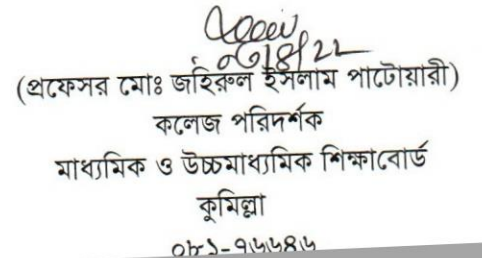 (প্রফেসর মোঃ জহিরুল ইসলাম পাটোয়ারী)
কলেজ পরিদর্শক
মাধ্যমিক ও উচ্চমাধ্যমিক শিক্ষাবোর্ড
কুমিল্লা
০৮১-৭৬৬৪৬